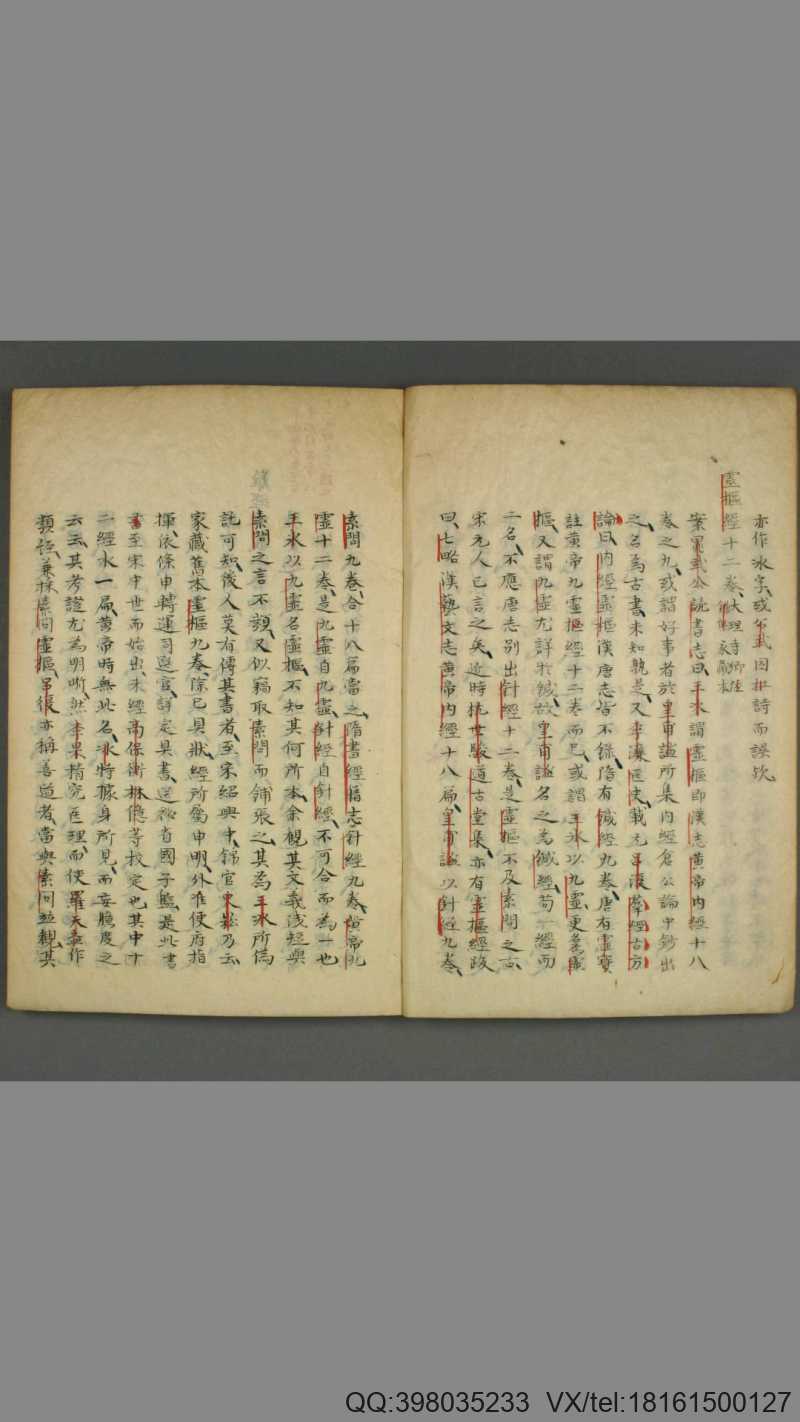 亦作冰字、或公武因杜詩而誤欤
靈樞經十二卷、大理寺卿陸
家藏本
案晁武公讀書志曰、王冰謂靈樞即漢志黃帝内經十八
卷之九、或謂好事者於皇甫謐所集内經倉公論中鈔出
之、名為古書、未知孰是、又李濂医史、載元呂復羣經古方
論曰、内經靈樞漢唐志皆不錄、隋有鍼經九卷、唐有靈寶
註黃帝九靈經十二卷而已、或謂王冰以九靈更名為靈
樞、又謂九靈尤詳於鍼、故皇甫謐名之為鍼經、苟一經而
二名、不應唐志別出針經十二卷、是靈樞不及素問之古、
宋元人已言之矣、近時杭世駿道古堂集、亦有靈樞經跋
曰、七略漢藝文志黃帝内經十八篇、皇甫謐以針經九卷、
素問九卷、合十八篇當之、隋書經籍志針經九卷、黃帝九
靈十二卷、是九靈自九靈、針經自針經、不可合而為一也
王冰以九靈名靈樞、不知其何所本、余觀其文義浅短與
素問之言不類、又似竊取素問而鋪張之、其為王冰所偽
託可知、後人莫有傳其書者、至宋紹興中、錦官史崧乃云
家藏舊本靈樞九卷、除已具狀、經所屬申明外、准使府指
揮、依條申轉運司選官、詳定具書、送秘省國子監、是此書
至宋中世而始出、未經高保衡林億等校定也、其中十
二經水一篇、黃帝時無此名、冰特據身所見、而妄臆度之
云云、其考證尤為明晰、然李杲精究医理、而使羅天益作
類經、兼採素問靈樞、呂復亦稱善道者、當與素問並觀、其